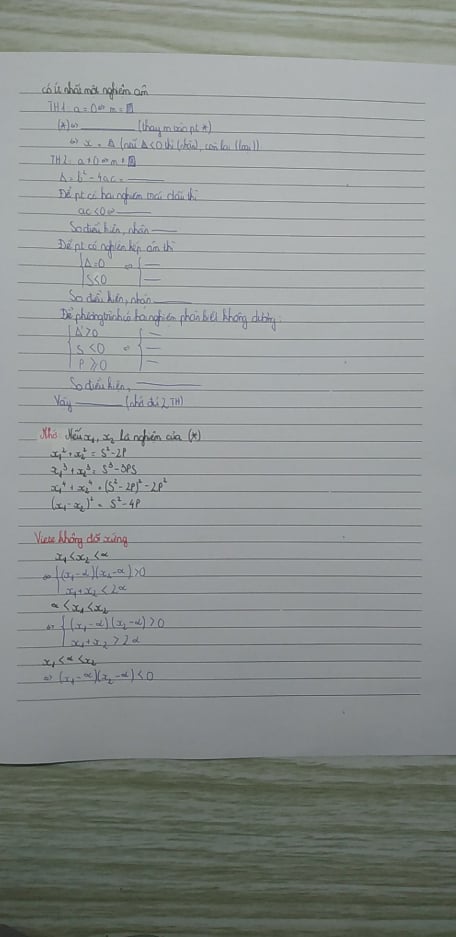 có ít nhất một nghiệm âm
TH1: a = 0 ⇔ m = □
(*) ⇔ ______ (thay m vào pt *)
⇔ x = Δ (nếu Δ < 0 thì (nhận), còn lại (loại))
TH2: a ≠ 0 ⇔ m ≠ □
Δ = b² - 4ac = ____
Để pt có hai nghiệm trái dấu thì
ac < 0 ⇔ ____
So điều kiện, nhận ____
Để pt có nghiệm kép âm thì
{ Δ = 0 ⇔ { —
{ S < 0 { —
So điều kiện, nhận ____
Để phương trình có hai nghiệm phân biệt không dương:
{ Δ > 0 { —
{ S < 0 ⇔ { —
{ P ≥ 0 { —
So điều kiện, ____
Vậy ____ (nhớ đủ 2 TH)
Nhớ: Nếu x₁, x₂ là nghiệm của (*)
x₁² + x₂² = S² - 2P
x₁³ + x₂³ = S³ - 3PS
x₁⁴ + x₂⁴ = (S² - 2P)² - 2P²
(x₁ - x₂)² = S² - 4P
Viete không đối xứng
x₁ < x₂ < α
⇔ { (x₁ - α)(x₂ - α) > 0
{ x₁ + x₂ < 2α
α < x₁ < x₂
⇔ { (x₁ - α)(x₂ - α) > 0
{ x₁ + x₂ > 2α
x₁ < α < x₂
⇔ (x₁ - α)(x₂ - α) < 0